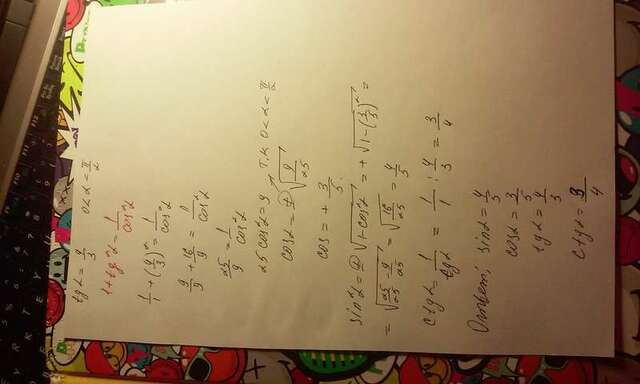 tg α = 4/3   0 < α < π/2
1 + tg²α = 1/cos²α
1/1 + (4/3)² = 1/cos²α
9/9 + 16/9 = 1/cos²α
25/9 = 1/cos²α
25 cos²α = 9   т.к 0 < α < π/2
cos α = ± √(9/25)
cos = + 3/5.
sin²α = ± √(1 - cos²α) = + √(1 - (3/5)²) =
= √(25/25 - 9/25) = √(16/25) = 4/5
ctg α = 1/tg α = 1/1 : 4/3 = 3/4
Ответ: sin α = 4/5
cos α = 3/5
tg α = 4/3
ctg α = 3/4